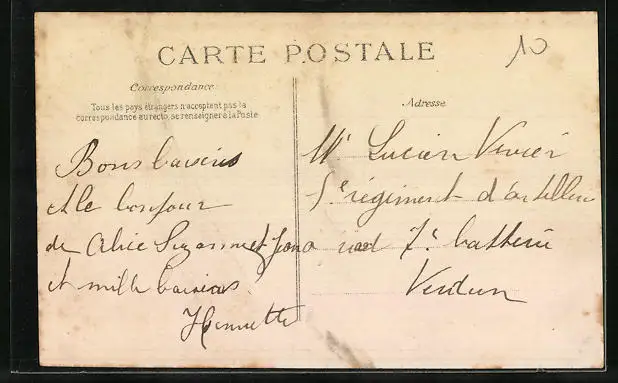 CARTE POSTALE
10
Correspondance
Tous les pays étrangers n'acceptent pas la
correspondance au recto, se renseigner à la Poste
Adresse
Bons baisers
et le bonjour
de Alice Suzanne et
et mille baisers
Henriette
Mr Lucien Vivier
5e régiment d'artillerie
7e batterie
Verdun